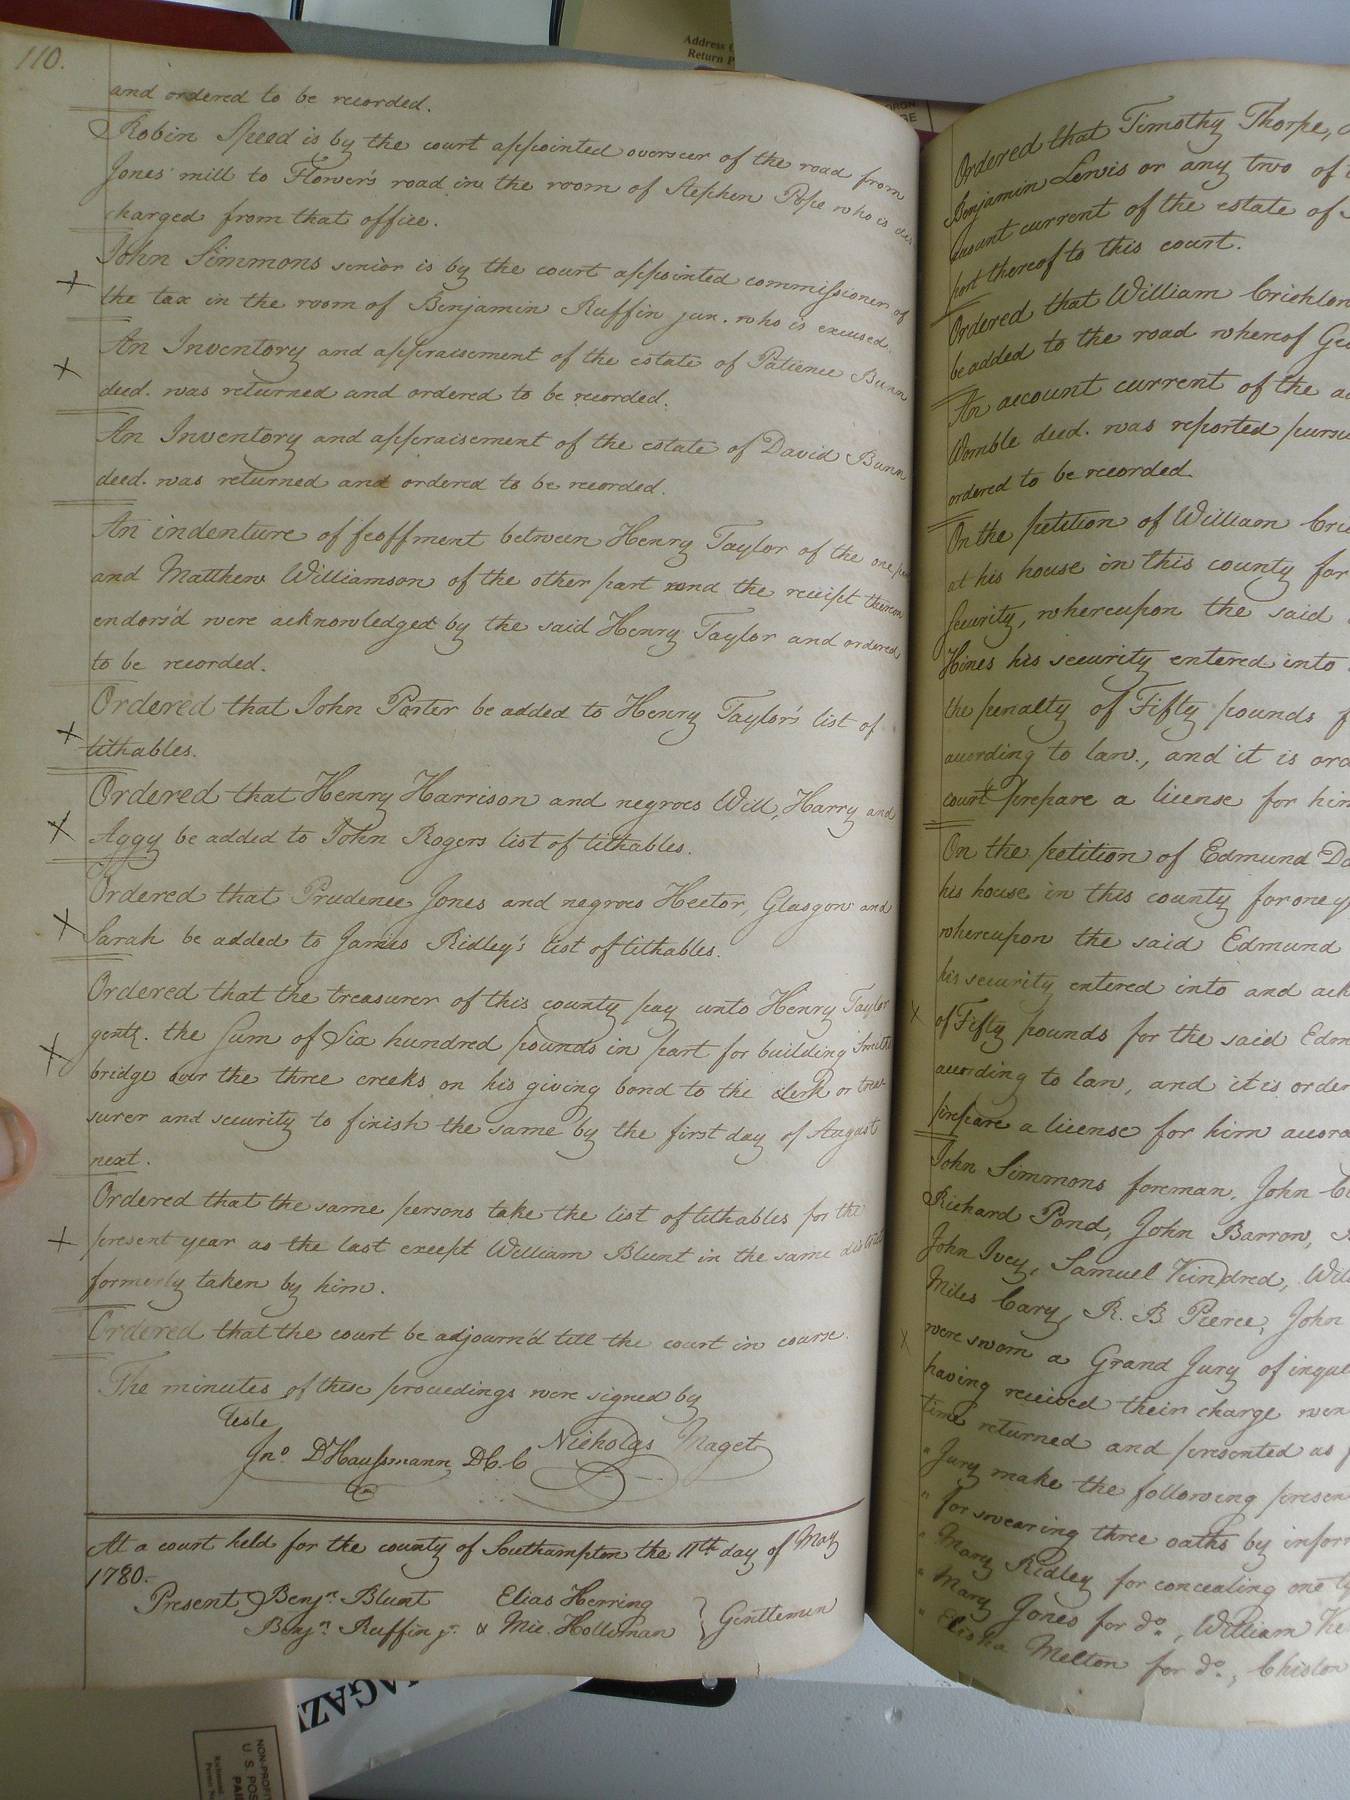 110.
and ordered to be recorded.
Robin Speed is by the court appointed overseer of the road from
Jones' mill to Flower's road in the room of Stephen Pope who is dis
charged from that office.
John Simmons senior is by the court appointed commissioner of
the tax in the room of Benjamin Ruffin jun. who is excused.
An Inventory and appraisement of the estate of Patience Bunn
decd. was returned and ordered to be recorded.
An Inventory and appraisement of the estate of David Bunn
decd. was returned and ordered to be recorded.
An indenture of feoffment between Henry Taylor of the one
and Matthew Williamson of the other part and the receipt thereon
endors'd were acknowledged by the said Henry Taylor and ordered
to be recorded.
Ordered that John Porter be added to Henry Taylor's list of
tithables.
Ordered that Henry Harrison and negroes Will, Harry and
Aggy be added to John Rogers list of tithables.
Ordered that Prudence Jones and negroes Hector, Glasgow and
Sarah be added to James Ridley's list of tithables.
Ordered that the treasurer of this county pay unto Henry Taylor
gentl. the Sum of Six hundred pounds in part for building Smith's
bridge over the three creeks on his giving bond to the clerk or trea-
surer and security to finish the same by the first day of August
next.
Ordered that the same persons take the list of tithables for the
present year as the last except William Blunt in the same district
formerly taken by him.
Ordered that the court be adjourn'd till the court in course.
The minutes of these proceedings were signed by
Teste
Nicholas Maget
Jno. D'Haussmann D.C.C
At a court held for the county of Southampton the 11th day of May
1780.
Present, Benjn. Blunt Elias Herring
Benjn. Ruffin jr. & Mic. Holliman } Gentlemen
Ordered that Timothy Thorpe,
Benjamin Lewis or any two of
account current of the estate of
port thereof to this court.
Ordered that William Crichlow
be added to the road whereof
An account current of the
Womble decd. was reported
ordered to be recorded
On the petition of William
at his house in this county for
Security, whereupon the said
Hines his security entered into
the penalty of Fifty pounds
according to law, and it is
court prepare a license for him
On the petition of Edmund
his house in this county for one
whereupon the said Edmund
his security entered into and
of Fifty pounds for the said
according to law, and it is
prepare a license for him
John Simmons foreman, John
Richard Pond, John Barrow,
John Ivey, Samuel Kindred,
Miles Cary, R. B. Pierce, John
were sworn a Grand Jury of
having received their charge
time returned and presented as
" Jury make the following
" for swearing three oaths by
" Mary Ridley for concealing one
" Mary Jones for do., William
" Elisha Melton for do.,
Address
Return
MAGAZ
NON-PROFIT
U. S. POS
PAI